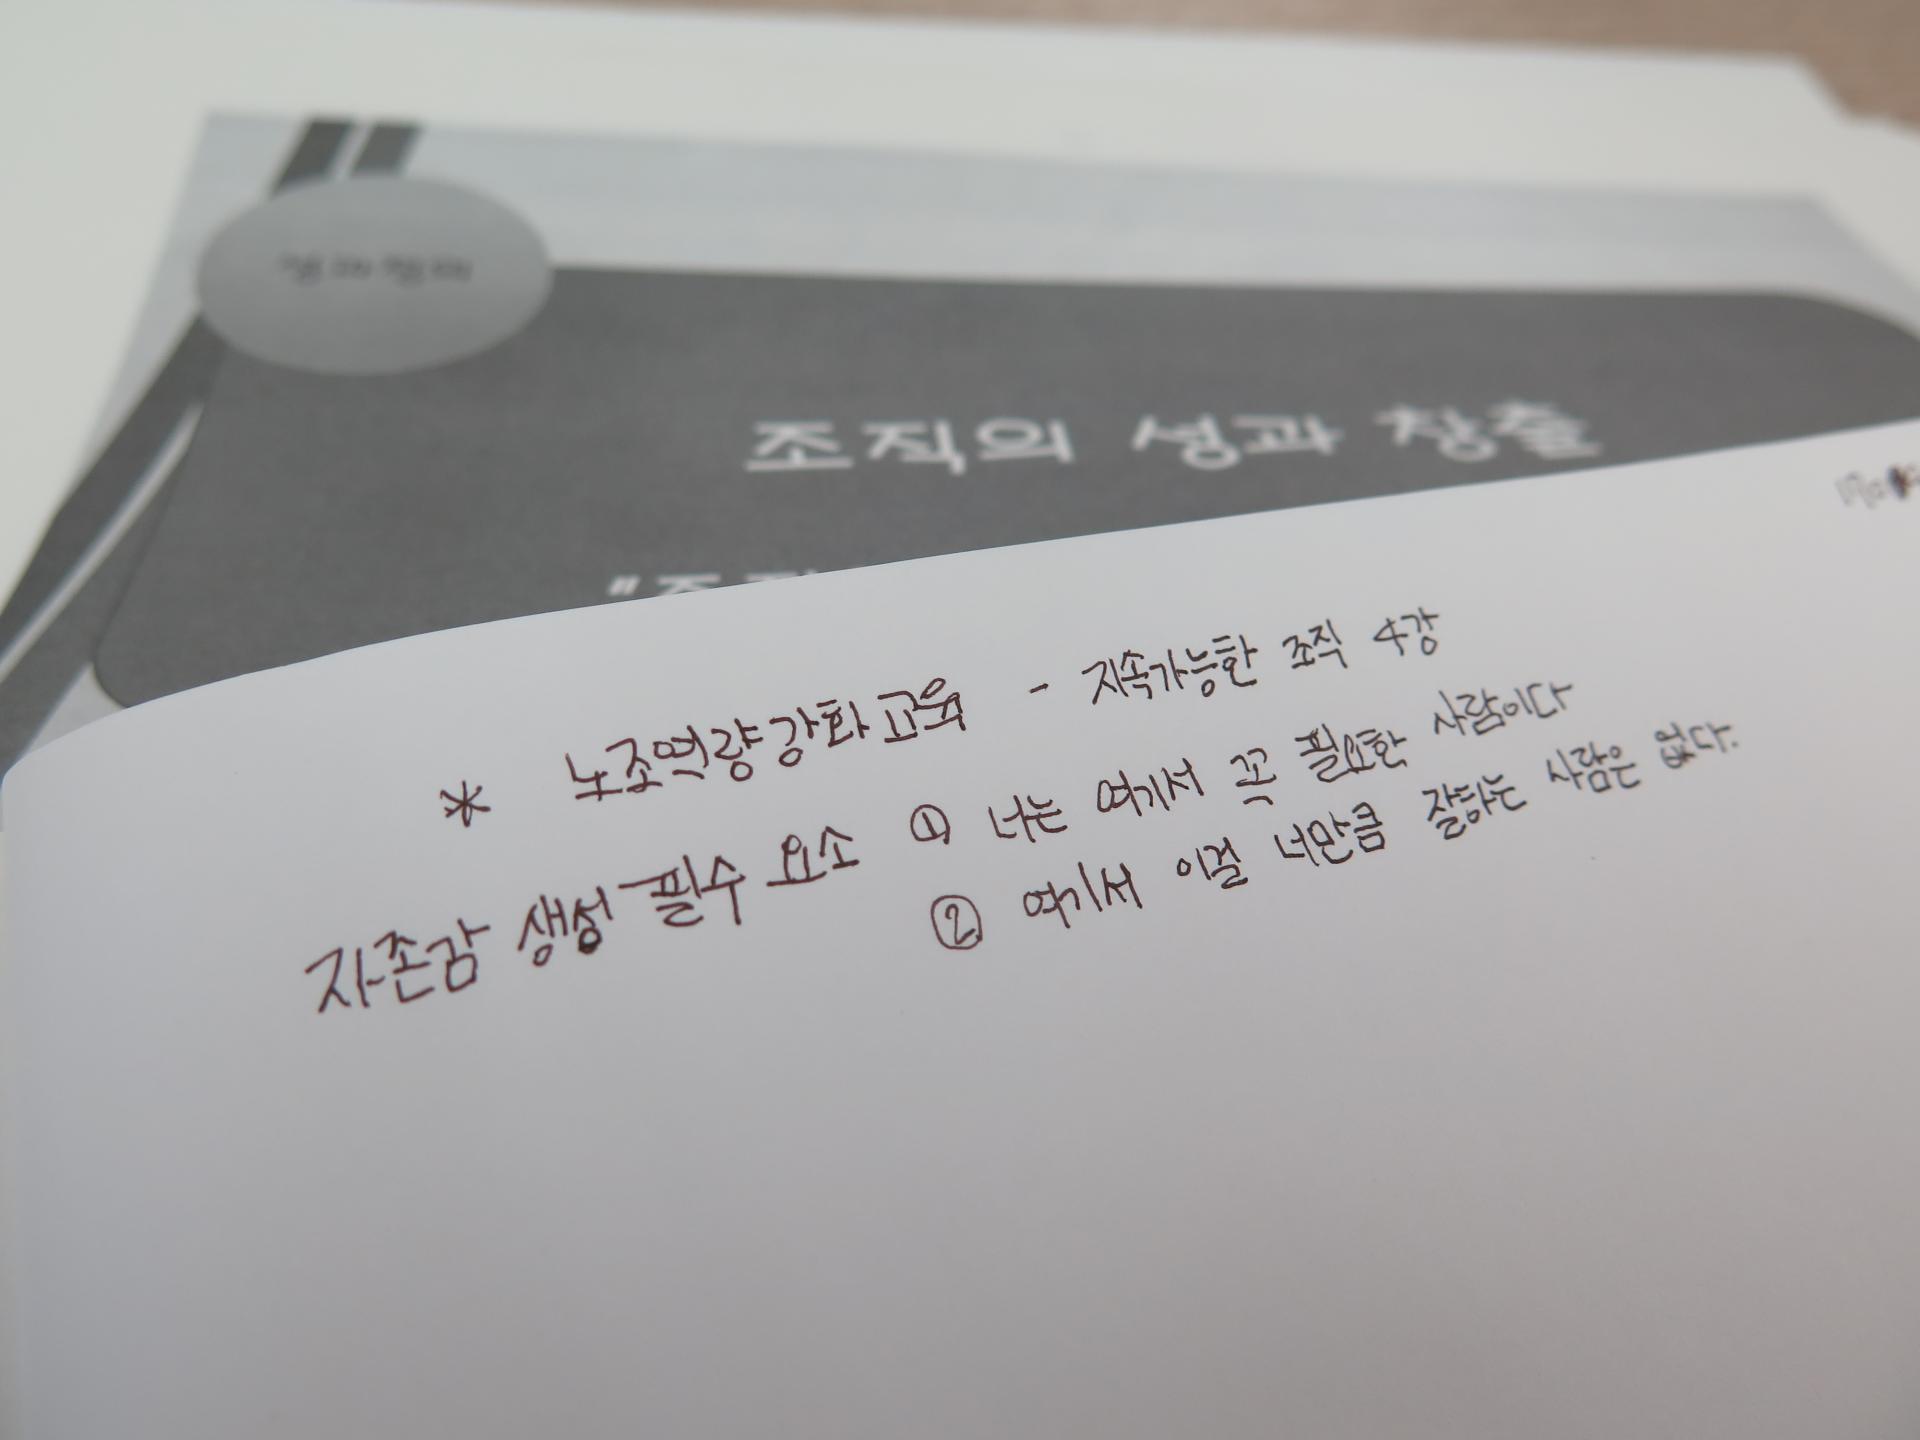 조직의 성과 창출
* 노조역량강화교육 - 지속가능한 조직 4강
자존감 생성 필수 요소 ① 너는 여기서 꼭 필요한 사람이다
② 여기서 이걸 너만큼 잘하는 사람은 없다.